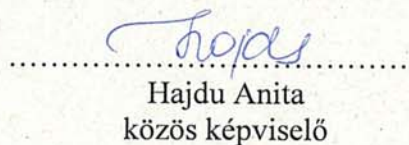 Hajdu Anita
közös képviselő